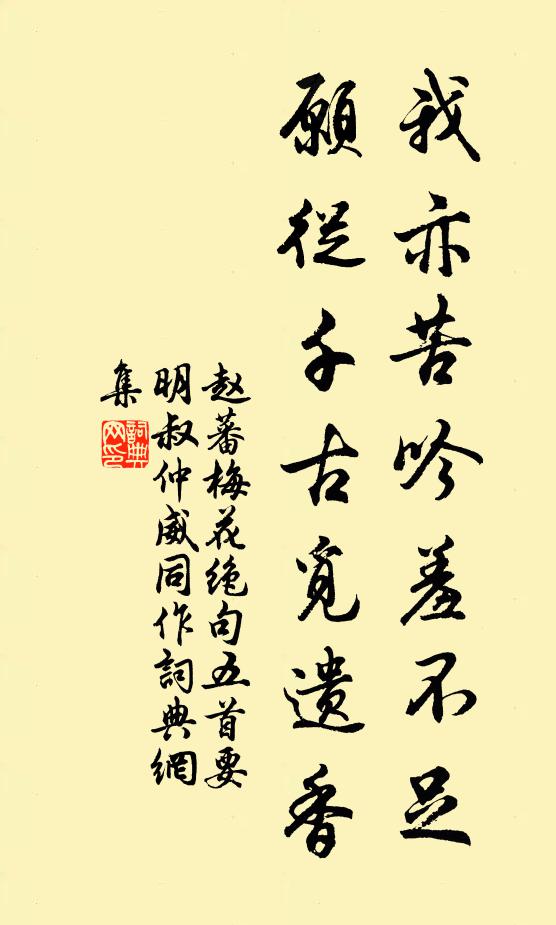 我亦苦吟羞不足
願從千古覓遺香
赵蕃梅花絶句五首要
明叔仲威同作詞典網
集
詞典网印